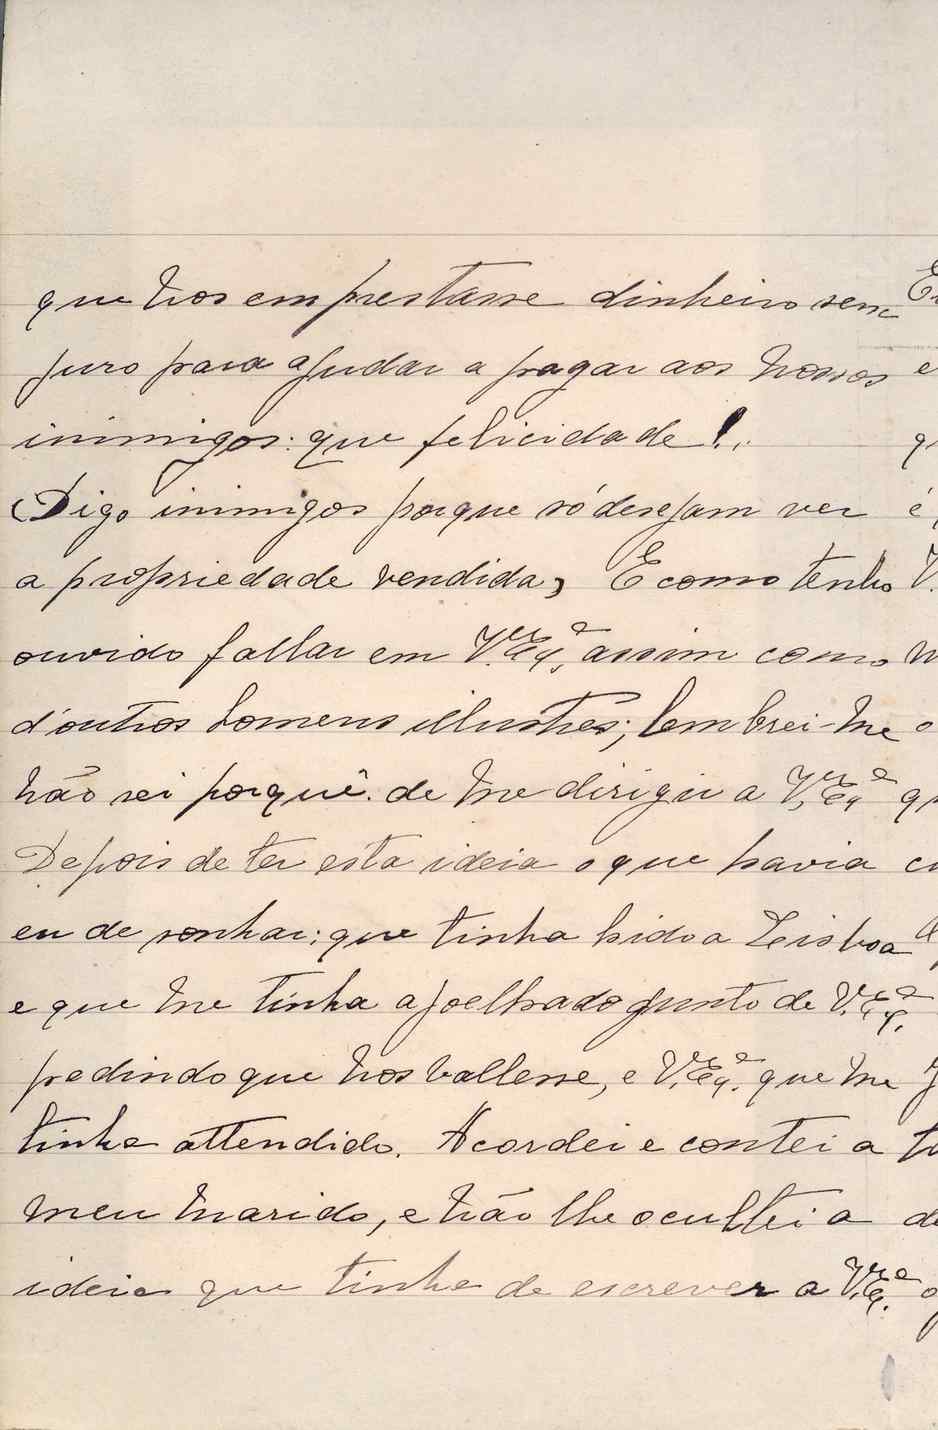 que nos emprestasse dinheiro sem
juro para ajudar a pagar aos nossos
inimigos: que felicidade!..
(Digo inimigos porque só desejam ver
a propriedade vendida) E como tenho
ouvido fallar em V. Ex.ª, assim como
d'outros homens illustres; lembrei-me
não sei porquê. de me dirigir a V. Ex.ª
Depois de ter esta ideia o que havia
eu de sonhar: que tinha hido a Leisboa
e que me tinha ajoelhado junto de V. Ex.ª
pedindo que nos vallesse, e V. Ex.ª que me
tinha attendido. Acordei e contei a
meu marido, e não lhe occultei a
ideia que tinha de escrever a V. Ex.ª